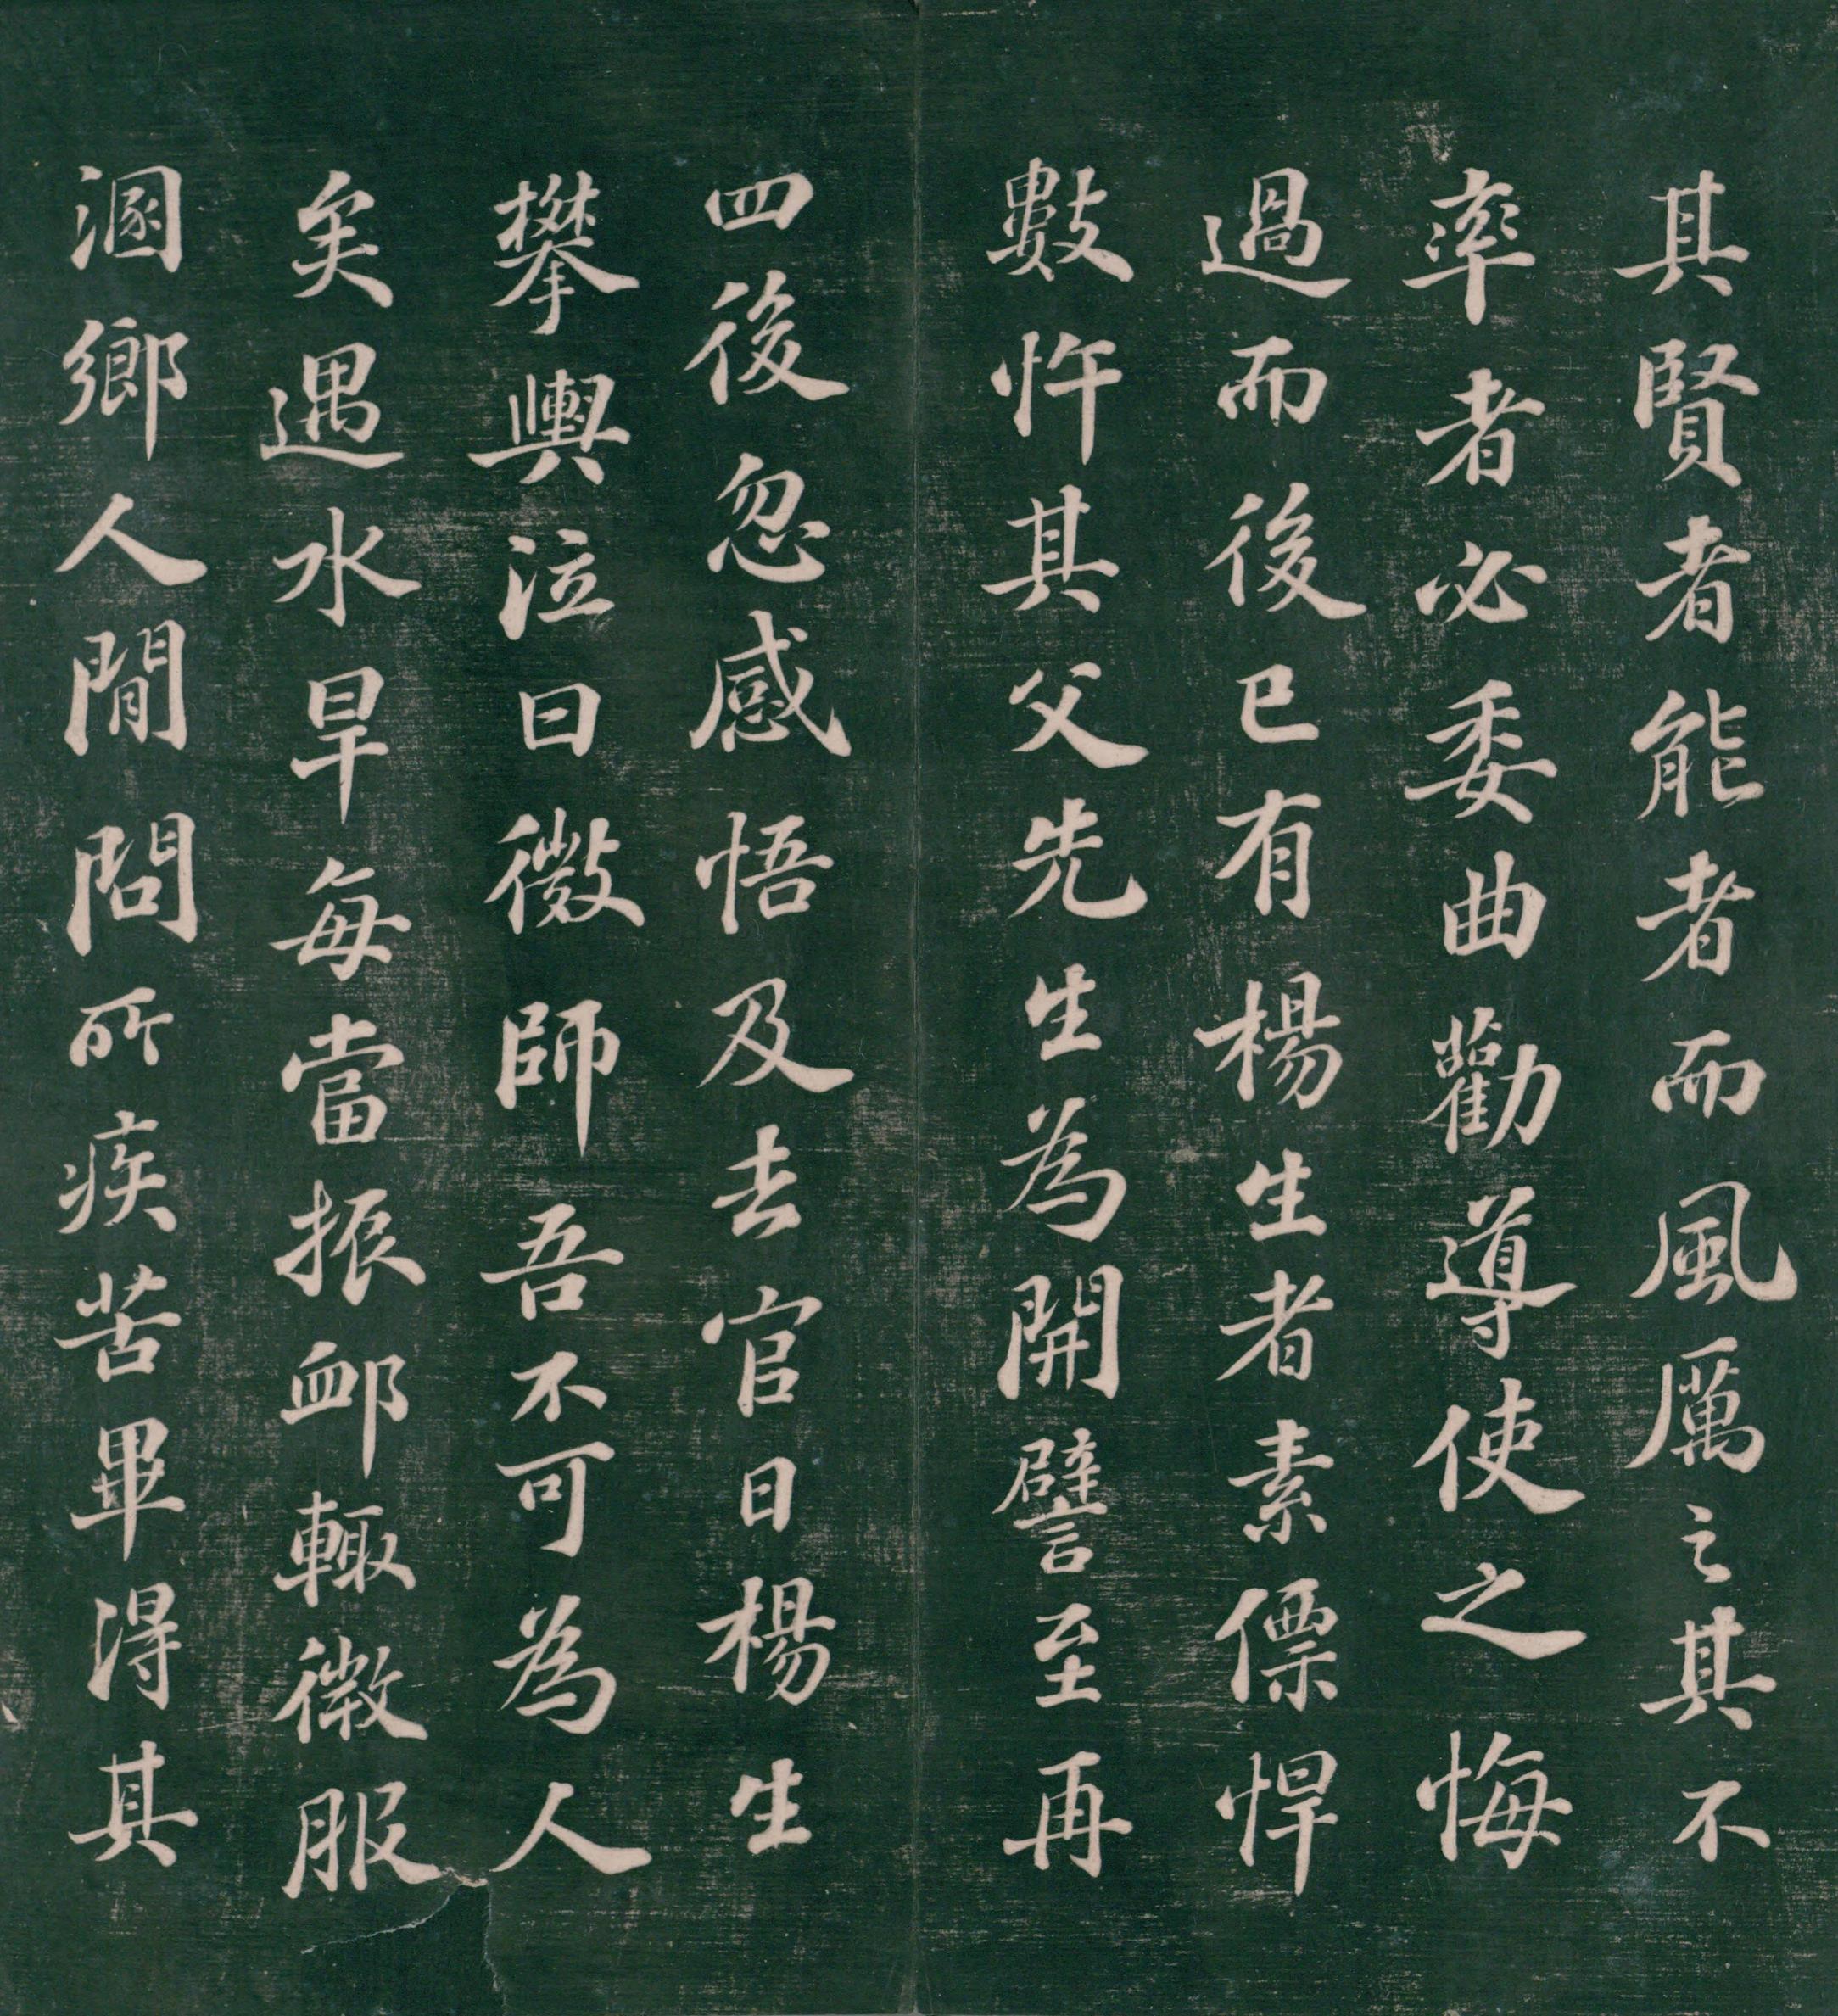 其賢者能者而風厲之其不
率者必委曲勸導使之悔
過而後已有楊生者素僄悍
數忤其父先生為開譬至再
四後忽感悟及去官日楊生
攀輿泣曰微師吾不可為人
矣遇水旱每當振卹輒微服
溷鄉人閒問所疾苦畢得其